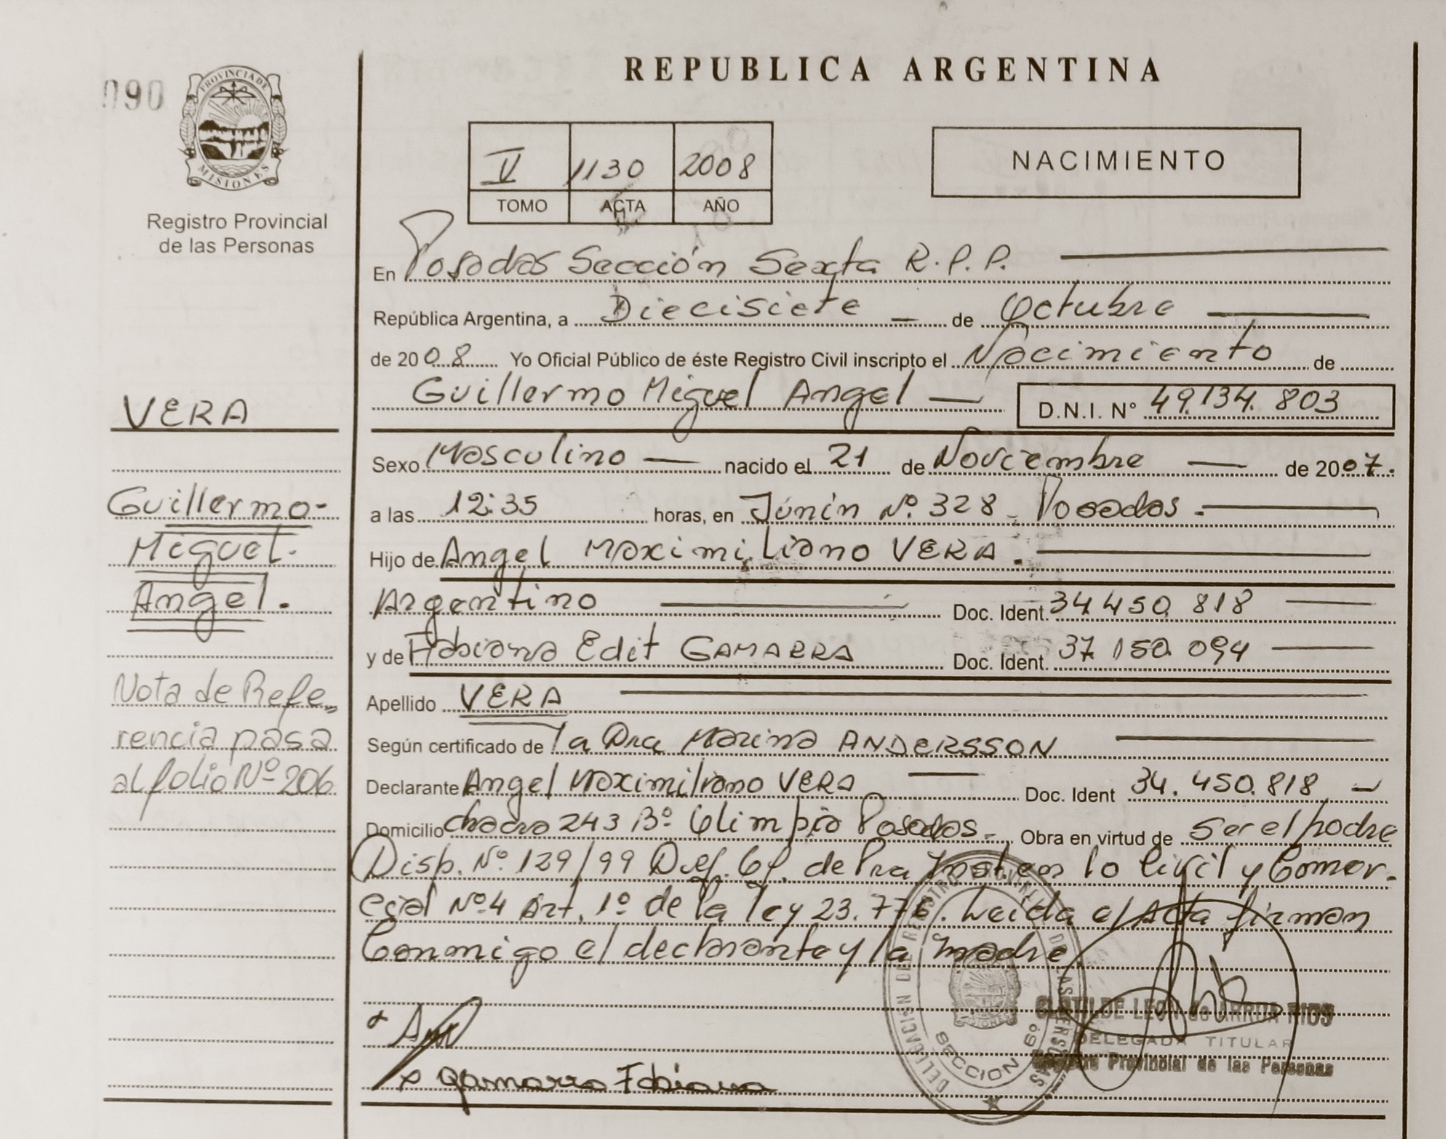 REPUBLICA ARGENTINA
090
PROVINCIA DE
MISIONES
Registro Provincial
de las Personas
V 1130 2008
TOMO ACTA AÑO
NACIMIENTO
En Posadas Sección Sexta R.P.P.
República Argentina, a Diecisiete de Octubre
de 2008 Yo Oficial Público de éste Registro Civil inscripto el Nacimiento de
Guillermo Miguel Angel D.N.I. N° 49.134.803
Sexo Masculino nacido el 21 de Noviembre de 2007.
a las 12:35 horas, en Junín Nº 328 Posadas.
Hijo de Angel Maximiliano VERA.
Argentino Doc. Ident. 34.450.818
y de Fabiana Edit GAMARRA Doc. Ident. 37.150.094
Apellido VERA
Según certificado de la Dra Marina ANDERSSON
Declarante Angel Maximiliano VERA Doc. Ident 34.450.818
Domicilio chacra 243 Bº Olimpio Posadas. Obra en virtud de Ser el padre
Disp. Nº 129/99 Def. Of. de Pra Inst. en lo Civil y Comer-
cial Nº4 Art. 1º de la ley 23.776. Leida el Acta firman
Conmigo el declarante y la madre
Gamarra Fabiana
VERA
Guillermo-
Miguel.
Angel.
Nota de Refe
rencia pasa
al folio Nº 206
DELEGACION DEL REGISTRO DE LAS PERSONAS
SECCION 6º
CLOTILDE LEON de ARRUA RIOS
DELEGADA TITULAR
Registro Provincial de las Personas